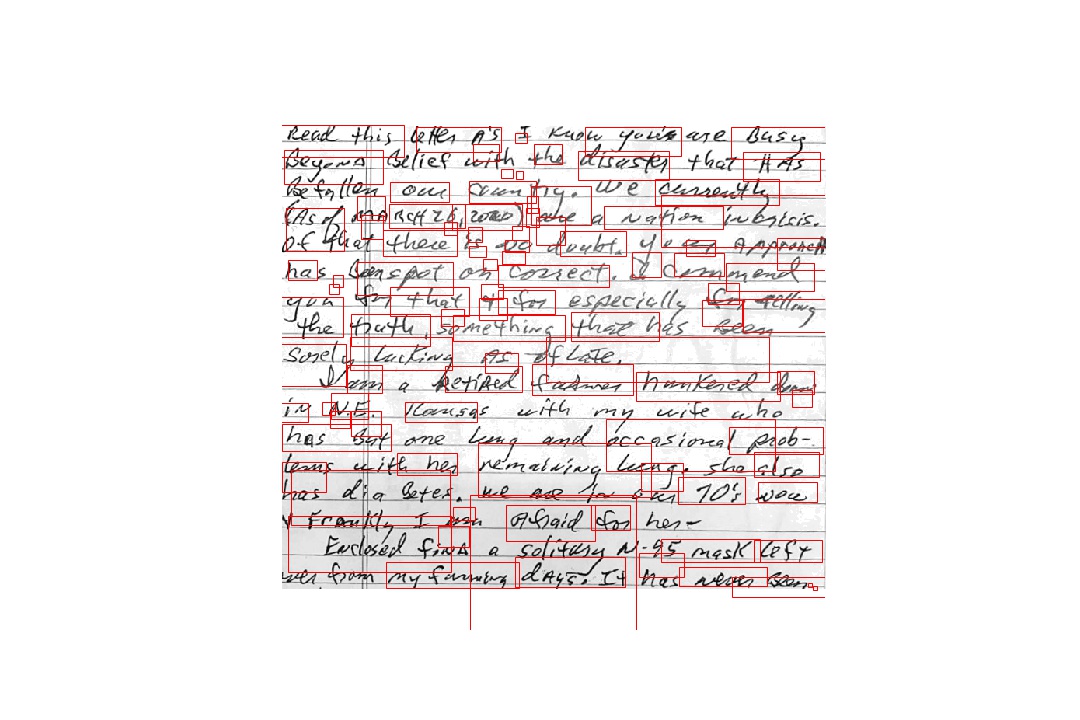 Read this letter A's I know you're are Busy
Beyond Belief with the disaster that HAS
Befallen our country. We currently
(As of MARCH 26, 2020) are a Nation in crisis.
of that there is no doubt. Your APPROACH
has been spot on correct. I commend
you for that & for especially for telling
the truth, something that has been
Sorely lacking AS of Late.
I am a retired farmer hunkered down
in N.E. Kansas with my wife who
has But one lung and occasional prob-
lems with her remaining lung. she also
has diabetes. we are in our 70's now
Frankly I am Afraid for her-
Enclosed find a solitary N-95 mask left
over from my farming dAys. It has never been